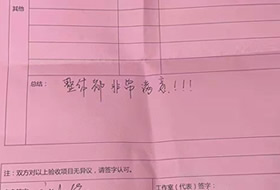 总结：
整体都非常满意!!!
注：双方对以上验收项目无异议，请签字认可。
工作室（代表）签字：